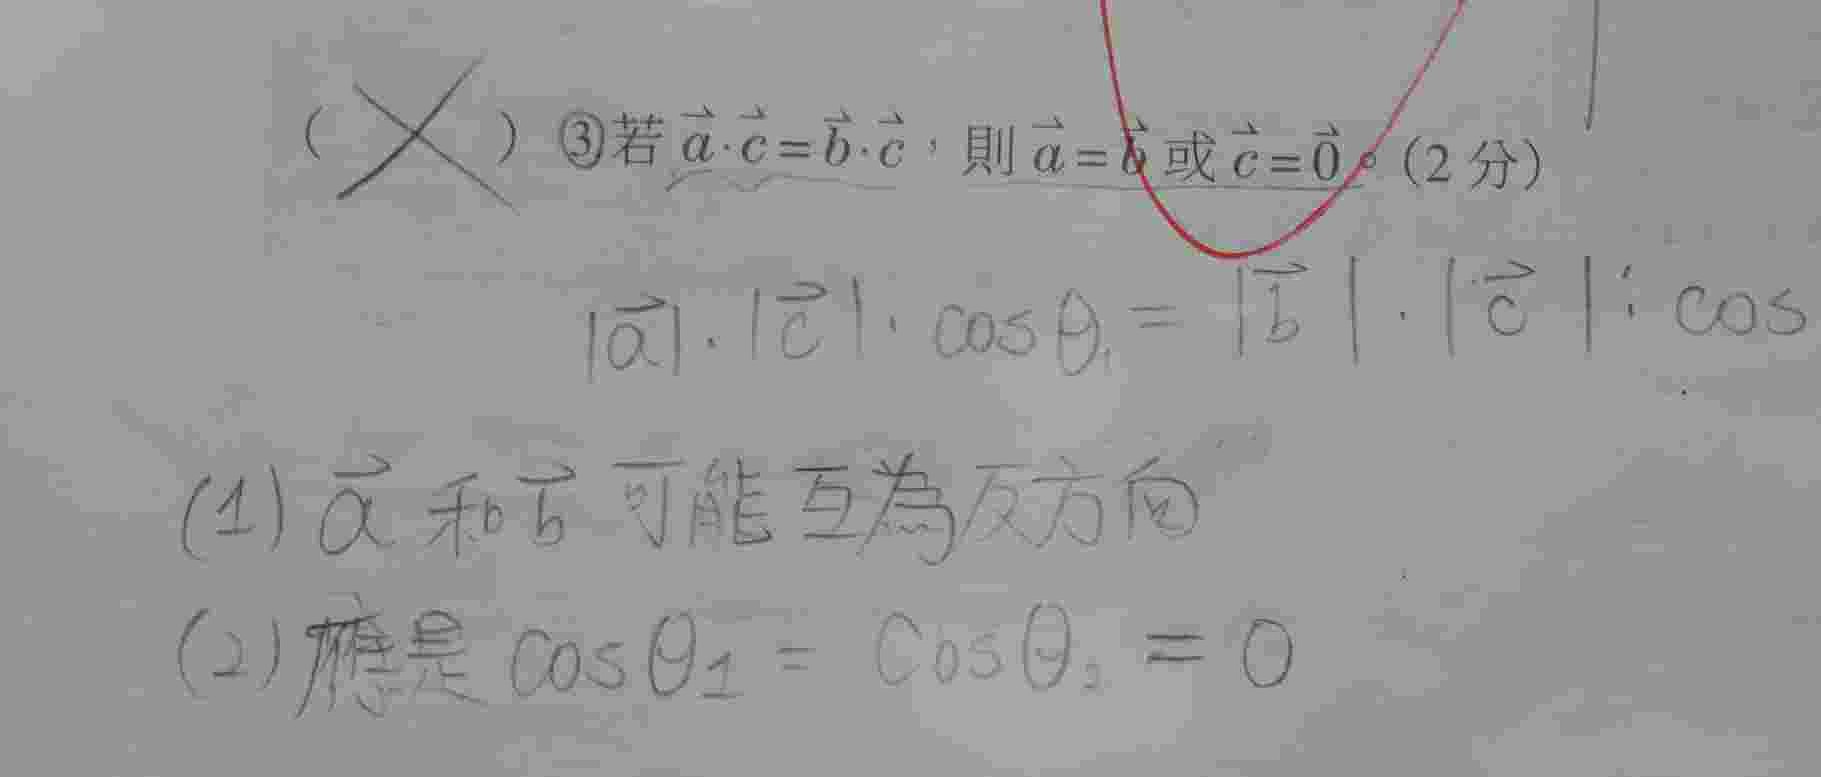 ( × ) ③若 a⃗·c⃗=b⃗·c⃗，則 a⃗=b⃗ 或 c⃗=0⃗。(2 分)
|a⃗|·|c⃗|·cosθ₁ = |b⃗|·|c⃗|·cos
(1) a⃗ 和 b⃗ 可能互為反方向
(2) 應是 cosθ1 = cosθ₂ = 0